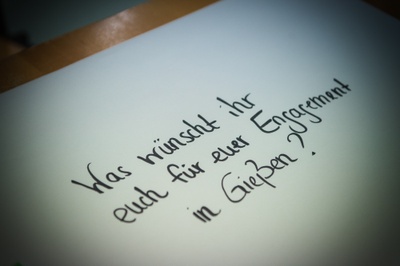 Was wünscht ihr
euch für euer Engagement
in Gießen?